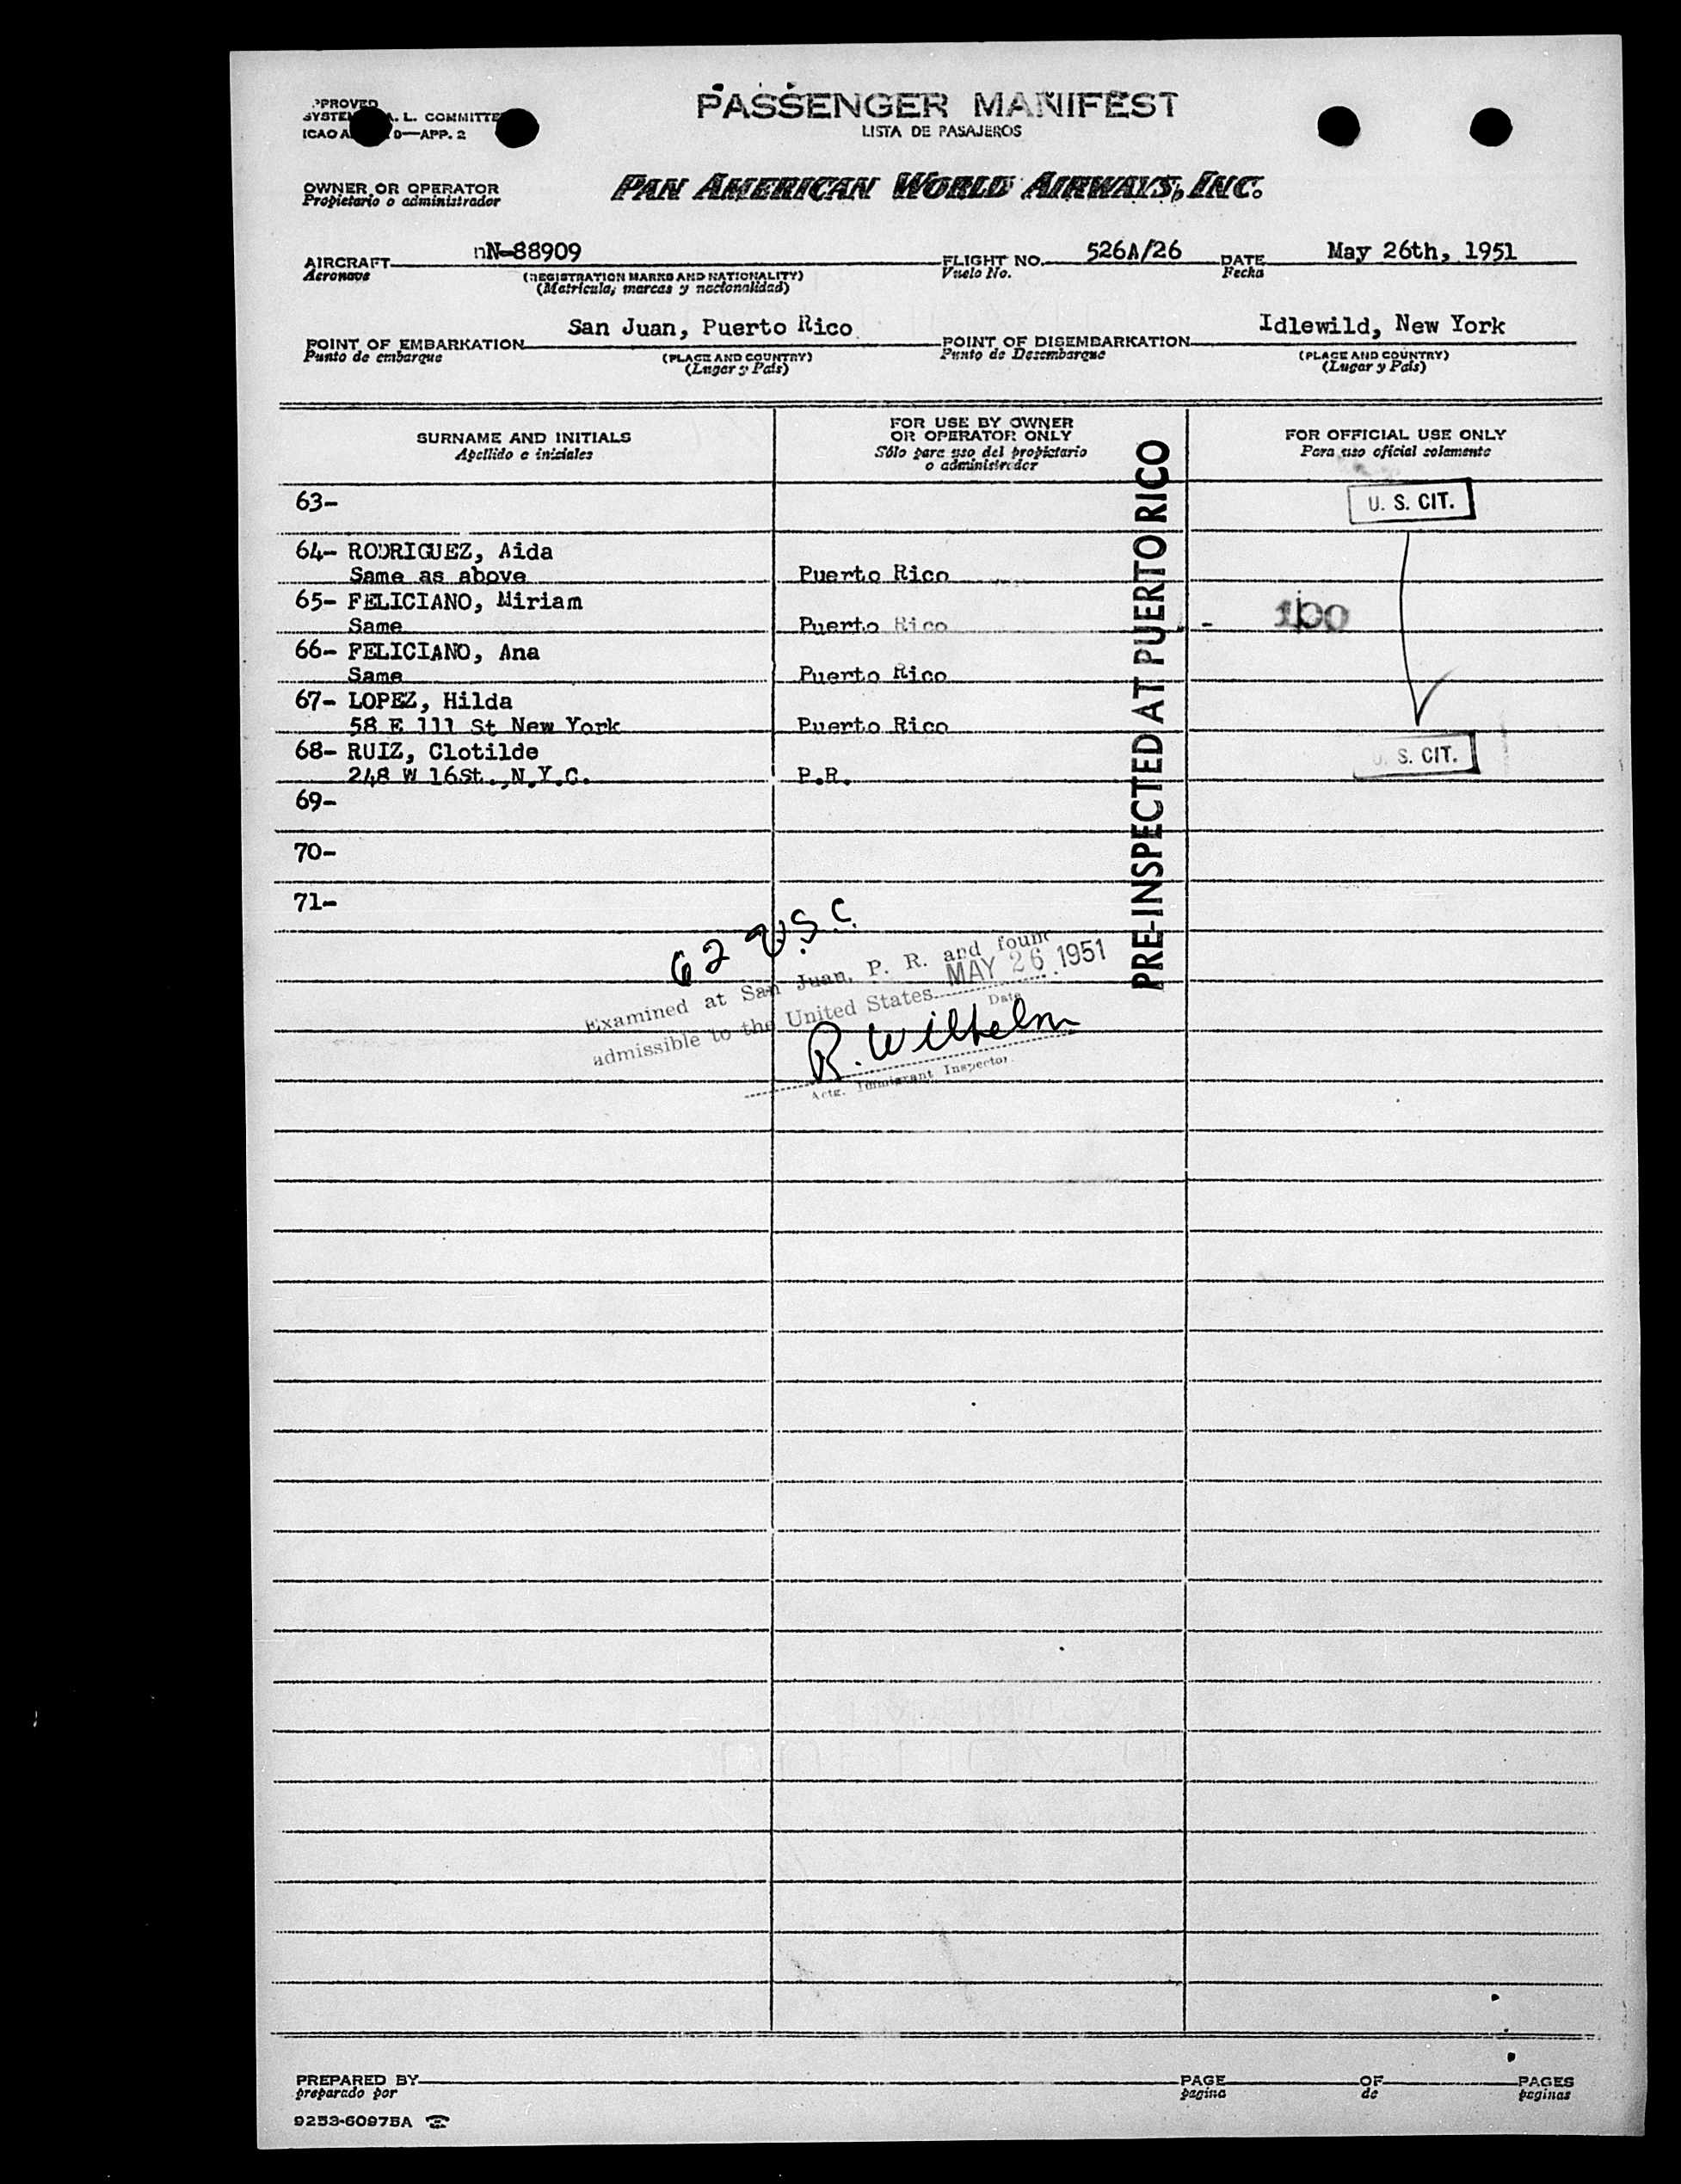 PASSENGER MANIFEST
LISTA DE PASAJEROS
A. L. COMMITTE
ICAO A D—APP. 2
OWNER OR OPERATOR
Propietario o administrador
PAN AMERICAN WORLD AIRWAYS, INC.
AIRCRAFT nN-88909 FLIGHT NO. 526A/26 DATE May 26th, 1951
Aeronave (REGISTRATION MARKS AND NATIONALITY) Vuelo No. Fecha
(Matrícula, marcas y nacionalidad)
POINT OF EMBARKATION San Juan, Puerto Rico POINT OF DISEMBARKATION Idlewild, New York
Punto de embarque (PLACE AND COUNTRY) Punto de Desembarque (PLACE AND COUNTRY)
(Lugar y País) (Lugar y País)
SURNAME AND INITIALS
Apellido e iniciales
FOR USE BY OWNER
OR OPERATOR ONLY
Sólo para uso del propietario
o administrador
FOR OFFICIAL USE ONLY
Para uso oficial solamente
63- U. S. CIT.
64- RODRIGUEZ, Aida
Same as above Puerto Rico
65- FELICIANO, Miriam
Same Puerto Rico - 100
66- FELICIANO, Ana
Same Puerto Rico
67- LOPEZ, Hilda
58 E 111 St New York Puerto Rico
68- RUIZ, Clotilde U. S. CIT.
248 W 16St., N.Y.C. P.R.
69-
70-
71-
PRE-INSPECTED AT PUERTO RICO
62 U.S.C.
Examined at San Juan, P. R. and found
admissible to the United States MAY 26 1951
Date
R. Wilhelm
Actg. Immigrant Inspector
PREPARED BY PAGE OF PAGES
preparado por pagina de paginas
9253-60975A